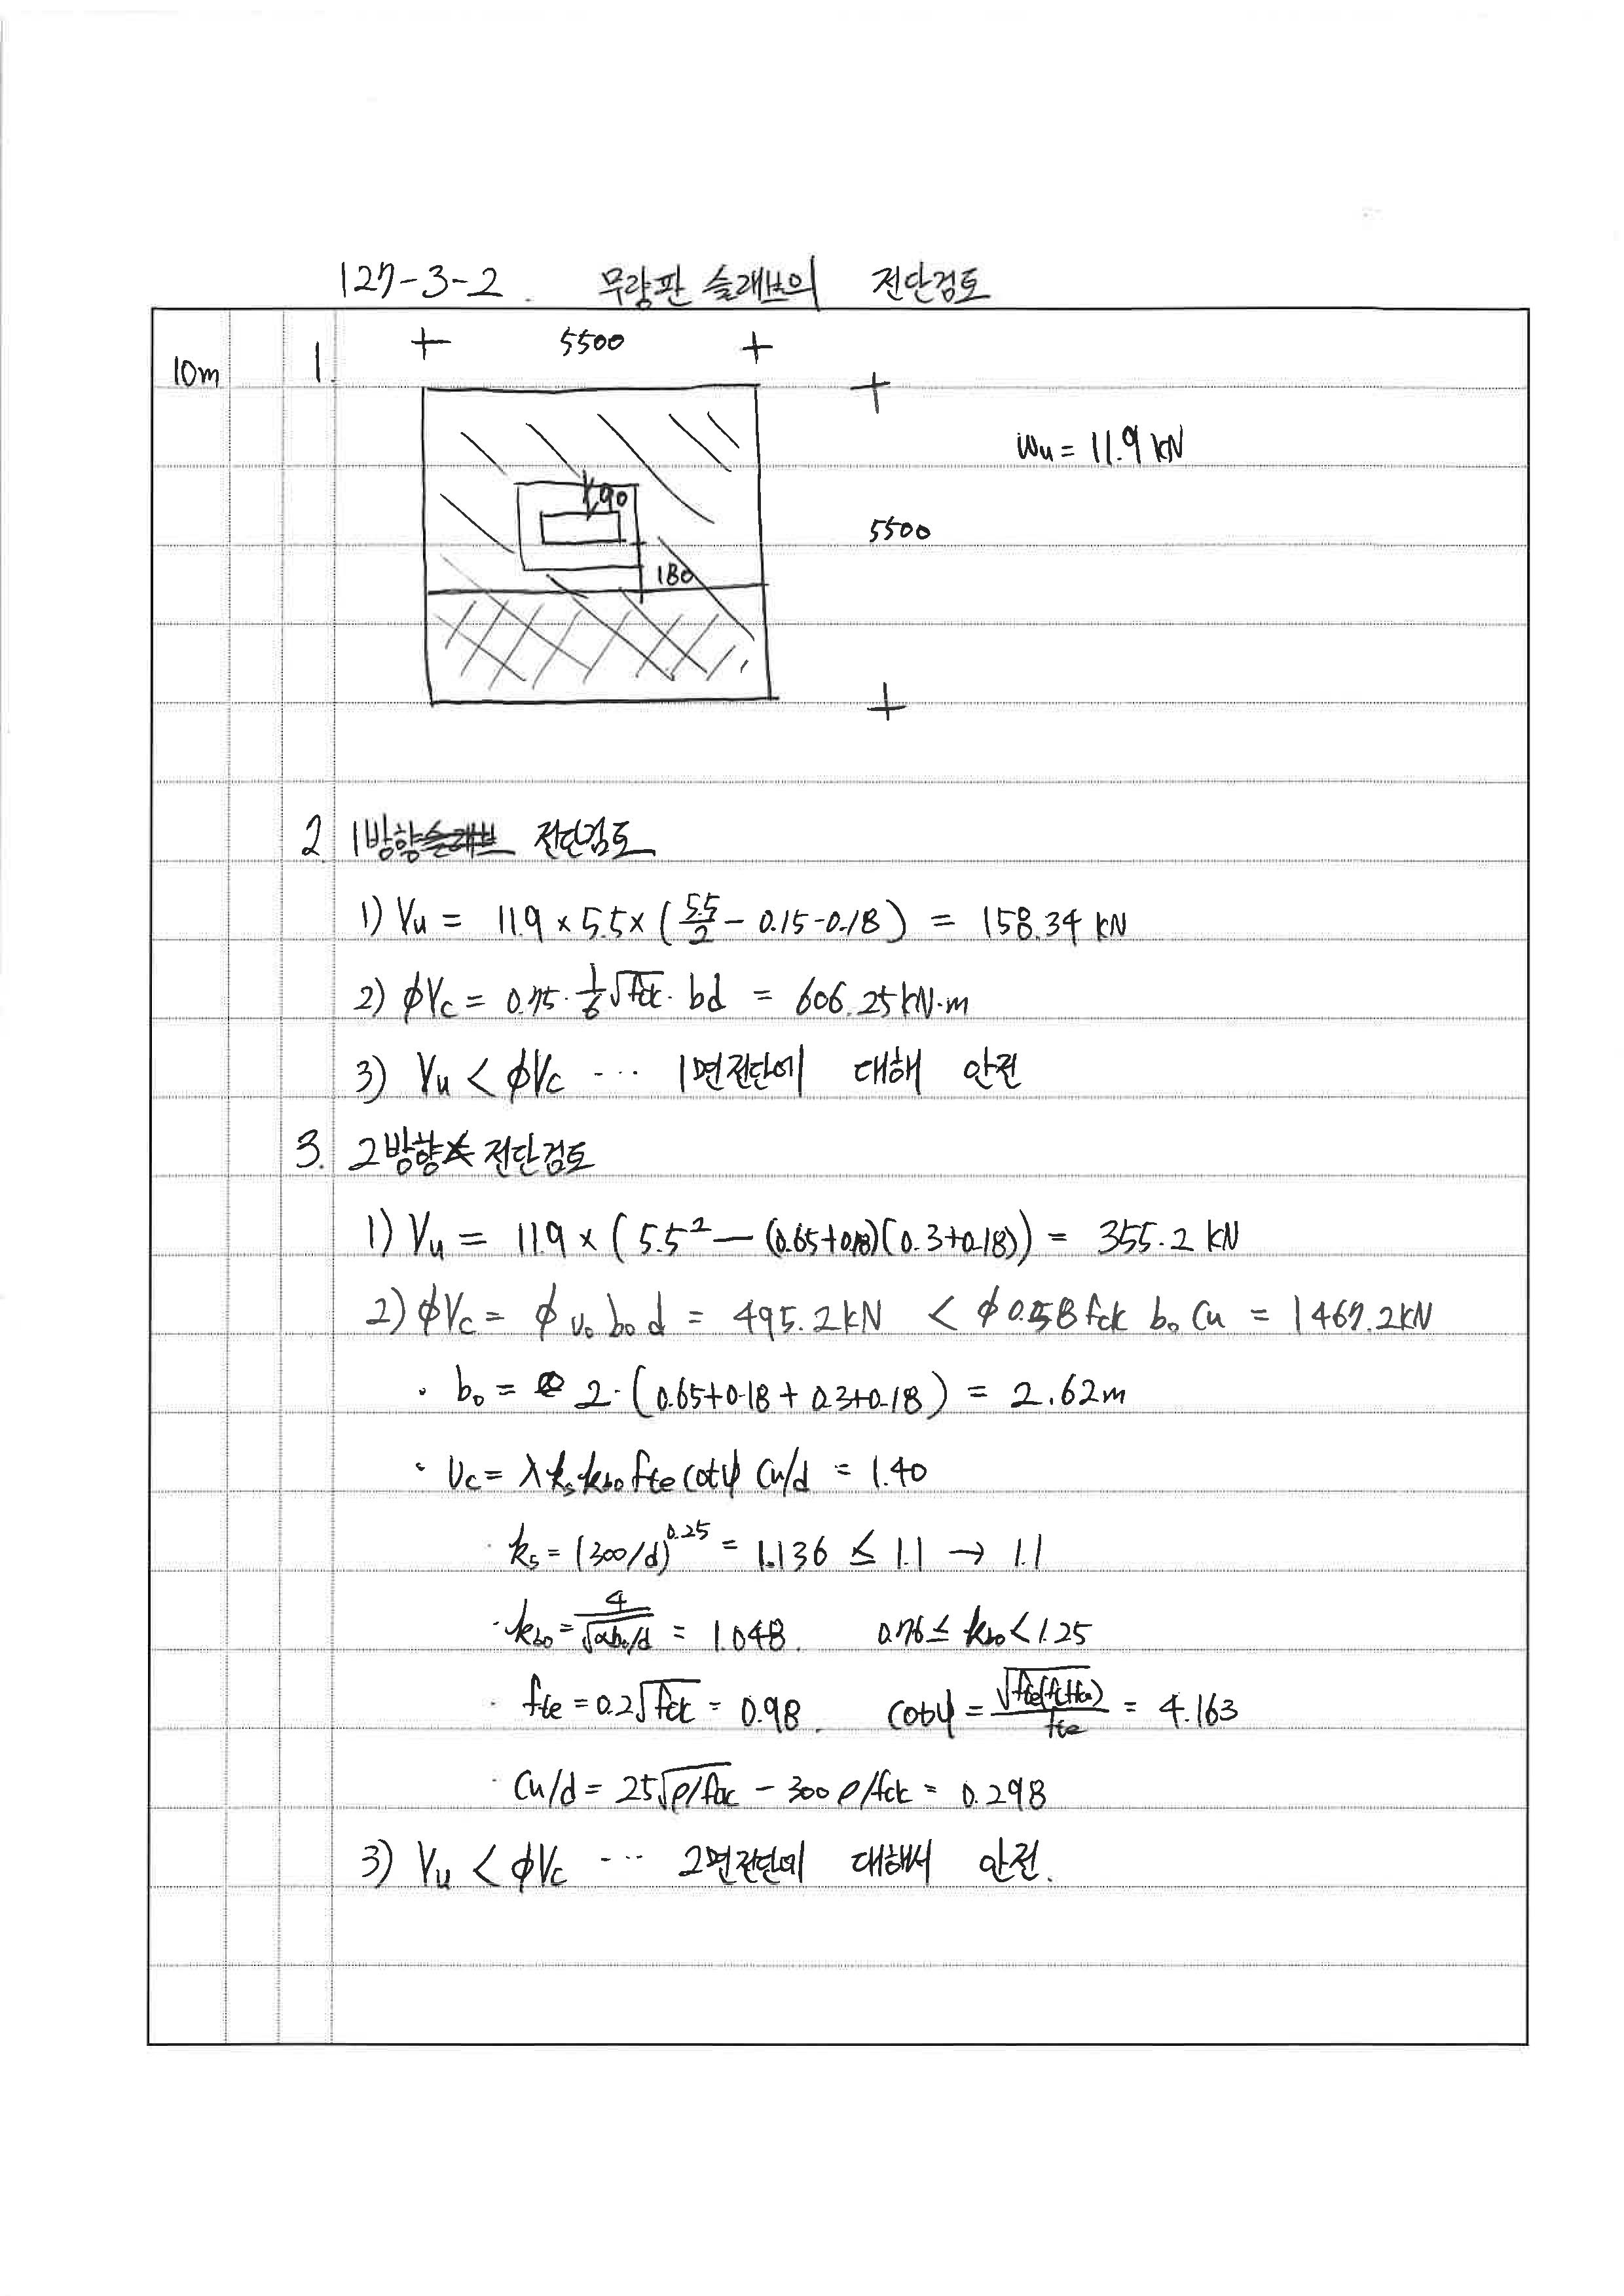 127-3-2. 무량판 슬래브의 전단검토
10m 1. 5500
wu = 11.9 kN
90
5500
180
2. 1방향 전단검토
1) Vu = 11.9 × 5.5 × (5.5/2 - 0.15 - 0.18) = 158.34 kN
2) φVc = 0.75 · 1/6 √fck · bd = 606.25 kN·m
3) Vu < φVc ··· 1면전단에 대해 안전
3. 2방향 전단검토
1) Vu = 11.9 × (5.5² - (0.65+0.18)(0.3+0.18)) = 355.2 kN
2) φVc = φ υ₀ b₀ d = 495.2 kN < φ 0.58 fck b₀ Cu = 1467.2 kN
· b₀ = 2·(0.65+0.18+0.3+0.18) = 2.62m
· υc = λ ks kbo fte cotψ Cu/d = 1.40
· ks = (300/d)^0.25 = 1.136 ≤ 1.1 → 1.1
· kbo = 4/√(αb₀/d) = 1.048. 0.76 ≤ kbo < 1.25
· fte = 0.2√fck = 0.98. cotψ = √fte(fte+fcc)/fte = 4.163
· Cu/d = 25√ρ/fck - 300 ρ/fck = 0.298
3) Vu < φVc ··· 2면전단에 대해서 안전.